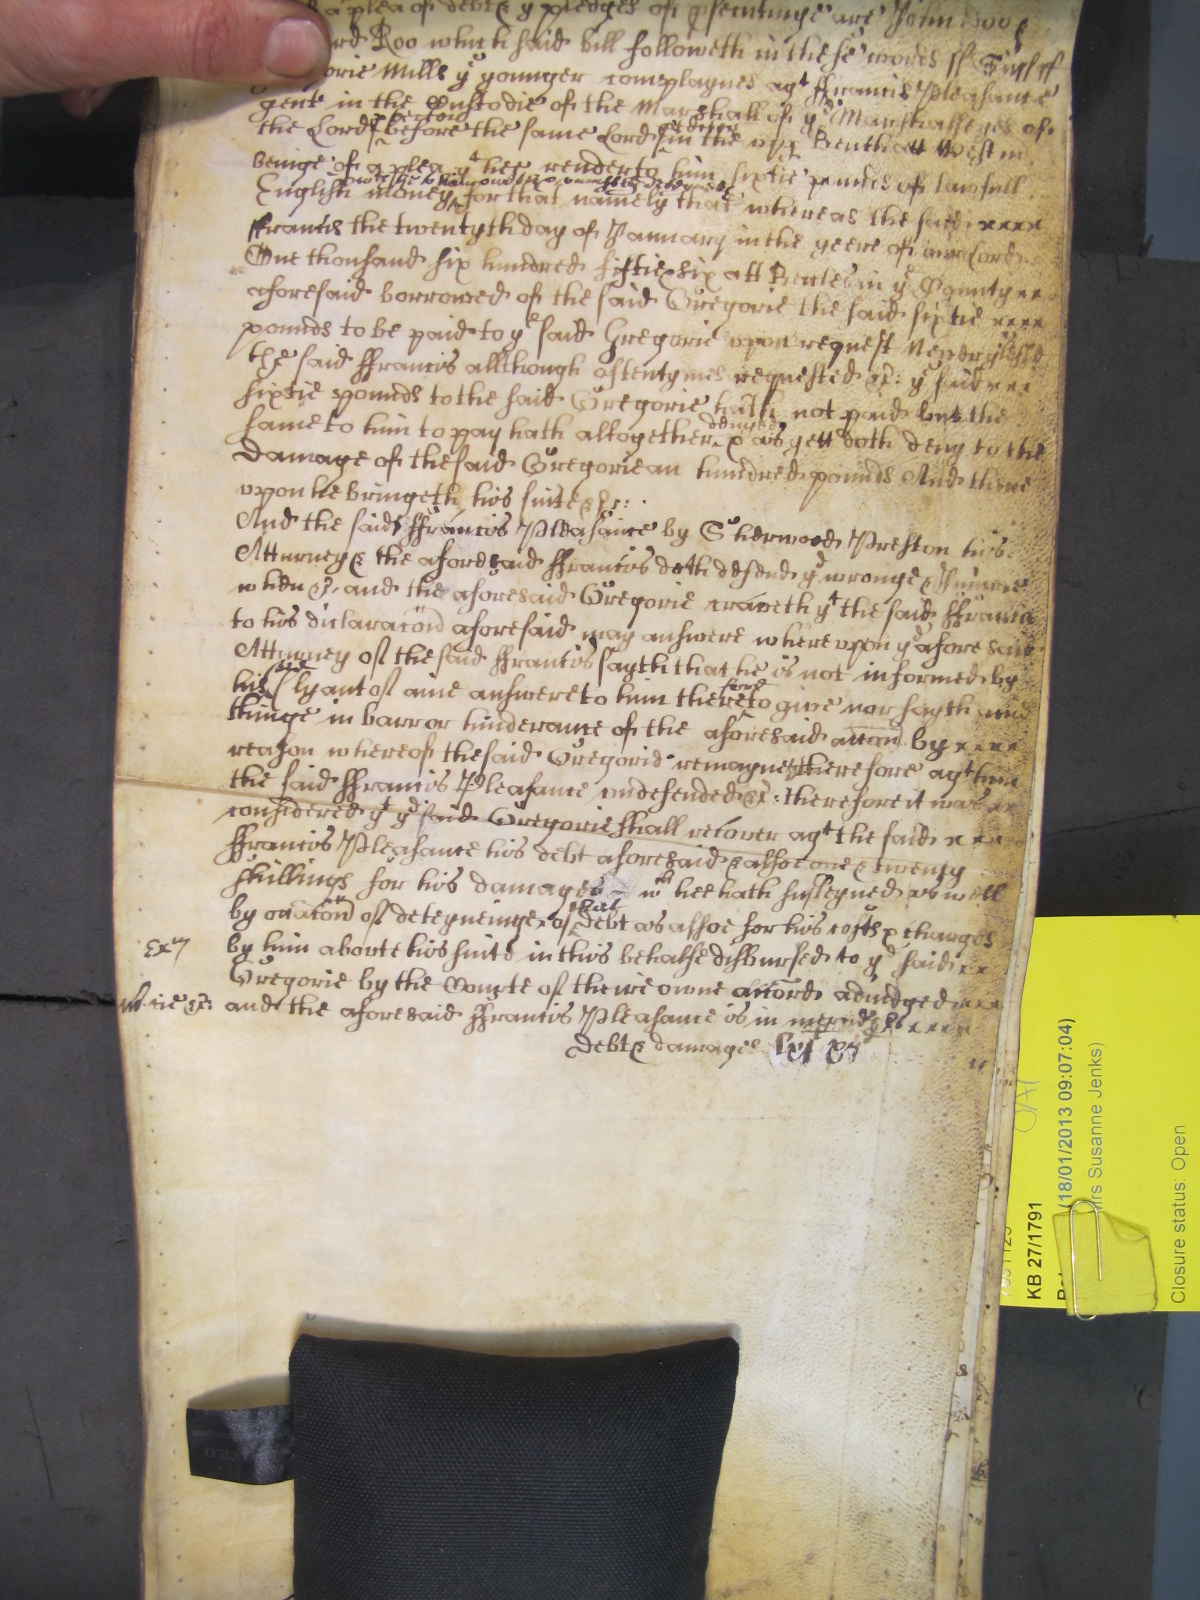 a plea of debt & ye pledges of psecutinge are John Doo &
Roo which said bill followeth in these words ss Suff ss
orie Mills ye younger complaynes agt ffrancis Pleasance
gent in the Custodie of the Marshall of ye Marshallsey of
the Lords before the same Lords in the upp Bench att Westm
beinge of a plea yt hee render to him sixtie pounds of lawfull
English money for that namely that whereas the said xxxx
ffrancis the twentyth day of January in the yeere of our Lord
One thousand six hundred fiftie six att Beccles in ye County
aforesaid borrowed of the said Gregorie the said sixtie xxxx
pounds to be paid to ye said Gregorie upon request Neverthelesse
the said ffrancis allthough oftentymes requested &c: ye said xxx
sixtie pounds to the said Gregorie hath not paid but the
same to him to pay hath altogether denyed & as yett doth deny to the
Damage of the said Gregorie an hundred pounds And there
upon he bringeth his suite &c:
And the said ffrancis Pleasance by Sherwood Preston his
Atturney & the aforesaid ffrancis doth defend ye wronge & Injurie
when &c. and the aforesaid Gregorie craveth yt the said ffrancis
to his declaracon aforesaid may answere where upon ye aforesaid
Atturney of the said ffrancis sayth that he is not informed by
his said Clyant of anie answere to him there to give nor sayth anie
thinge in barr or hinderance of the aforesaid accon by xxxx
reason whereof the said Gregorie remayneth therefore agt him
the said ffrancis Pleasance undefended &c: therefore it was xx
considered yt ye said Gregorie shall recover agt the said xxxx
ffrancis Pleasance his debt aforesaid & alsoe one & twenty
shillings for his damages wch hee hath susteyned as well
by occacon of deteyneinge of that debt as alsoe for his costs & charges
Exr
by him aboute his suite in this behalfe disbursed to ye said xx
Gregorie by the Courte of theire owne accord adjudged xxx
mcie &c: and the aforesaid ffrancis Pleasance is in mercie &c xxxx
Debt & damages
KB 27/1791
(18/01/2013 09:07:04)
Mrs Susanne Jenks)
Closure status: Open